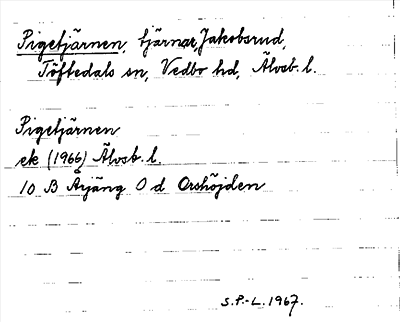 Pigetjärnen, tjärnar, Jakobsrud,
Töftedals sn, Vedbo hd, Älvsb. l.
Pigetjärnen
ek (1966) Älvsb. l.
10 B Årjäng 0 d Orshöjden
S.P.-L. 1967.